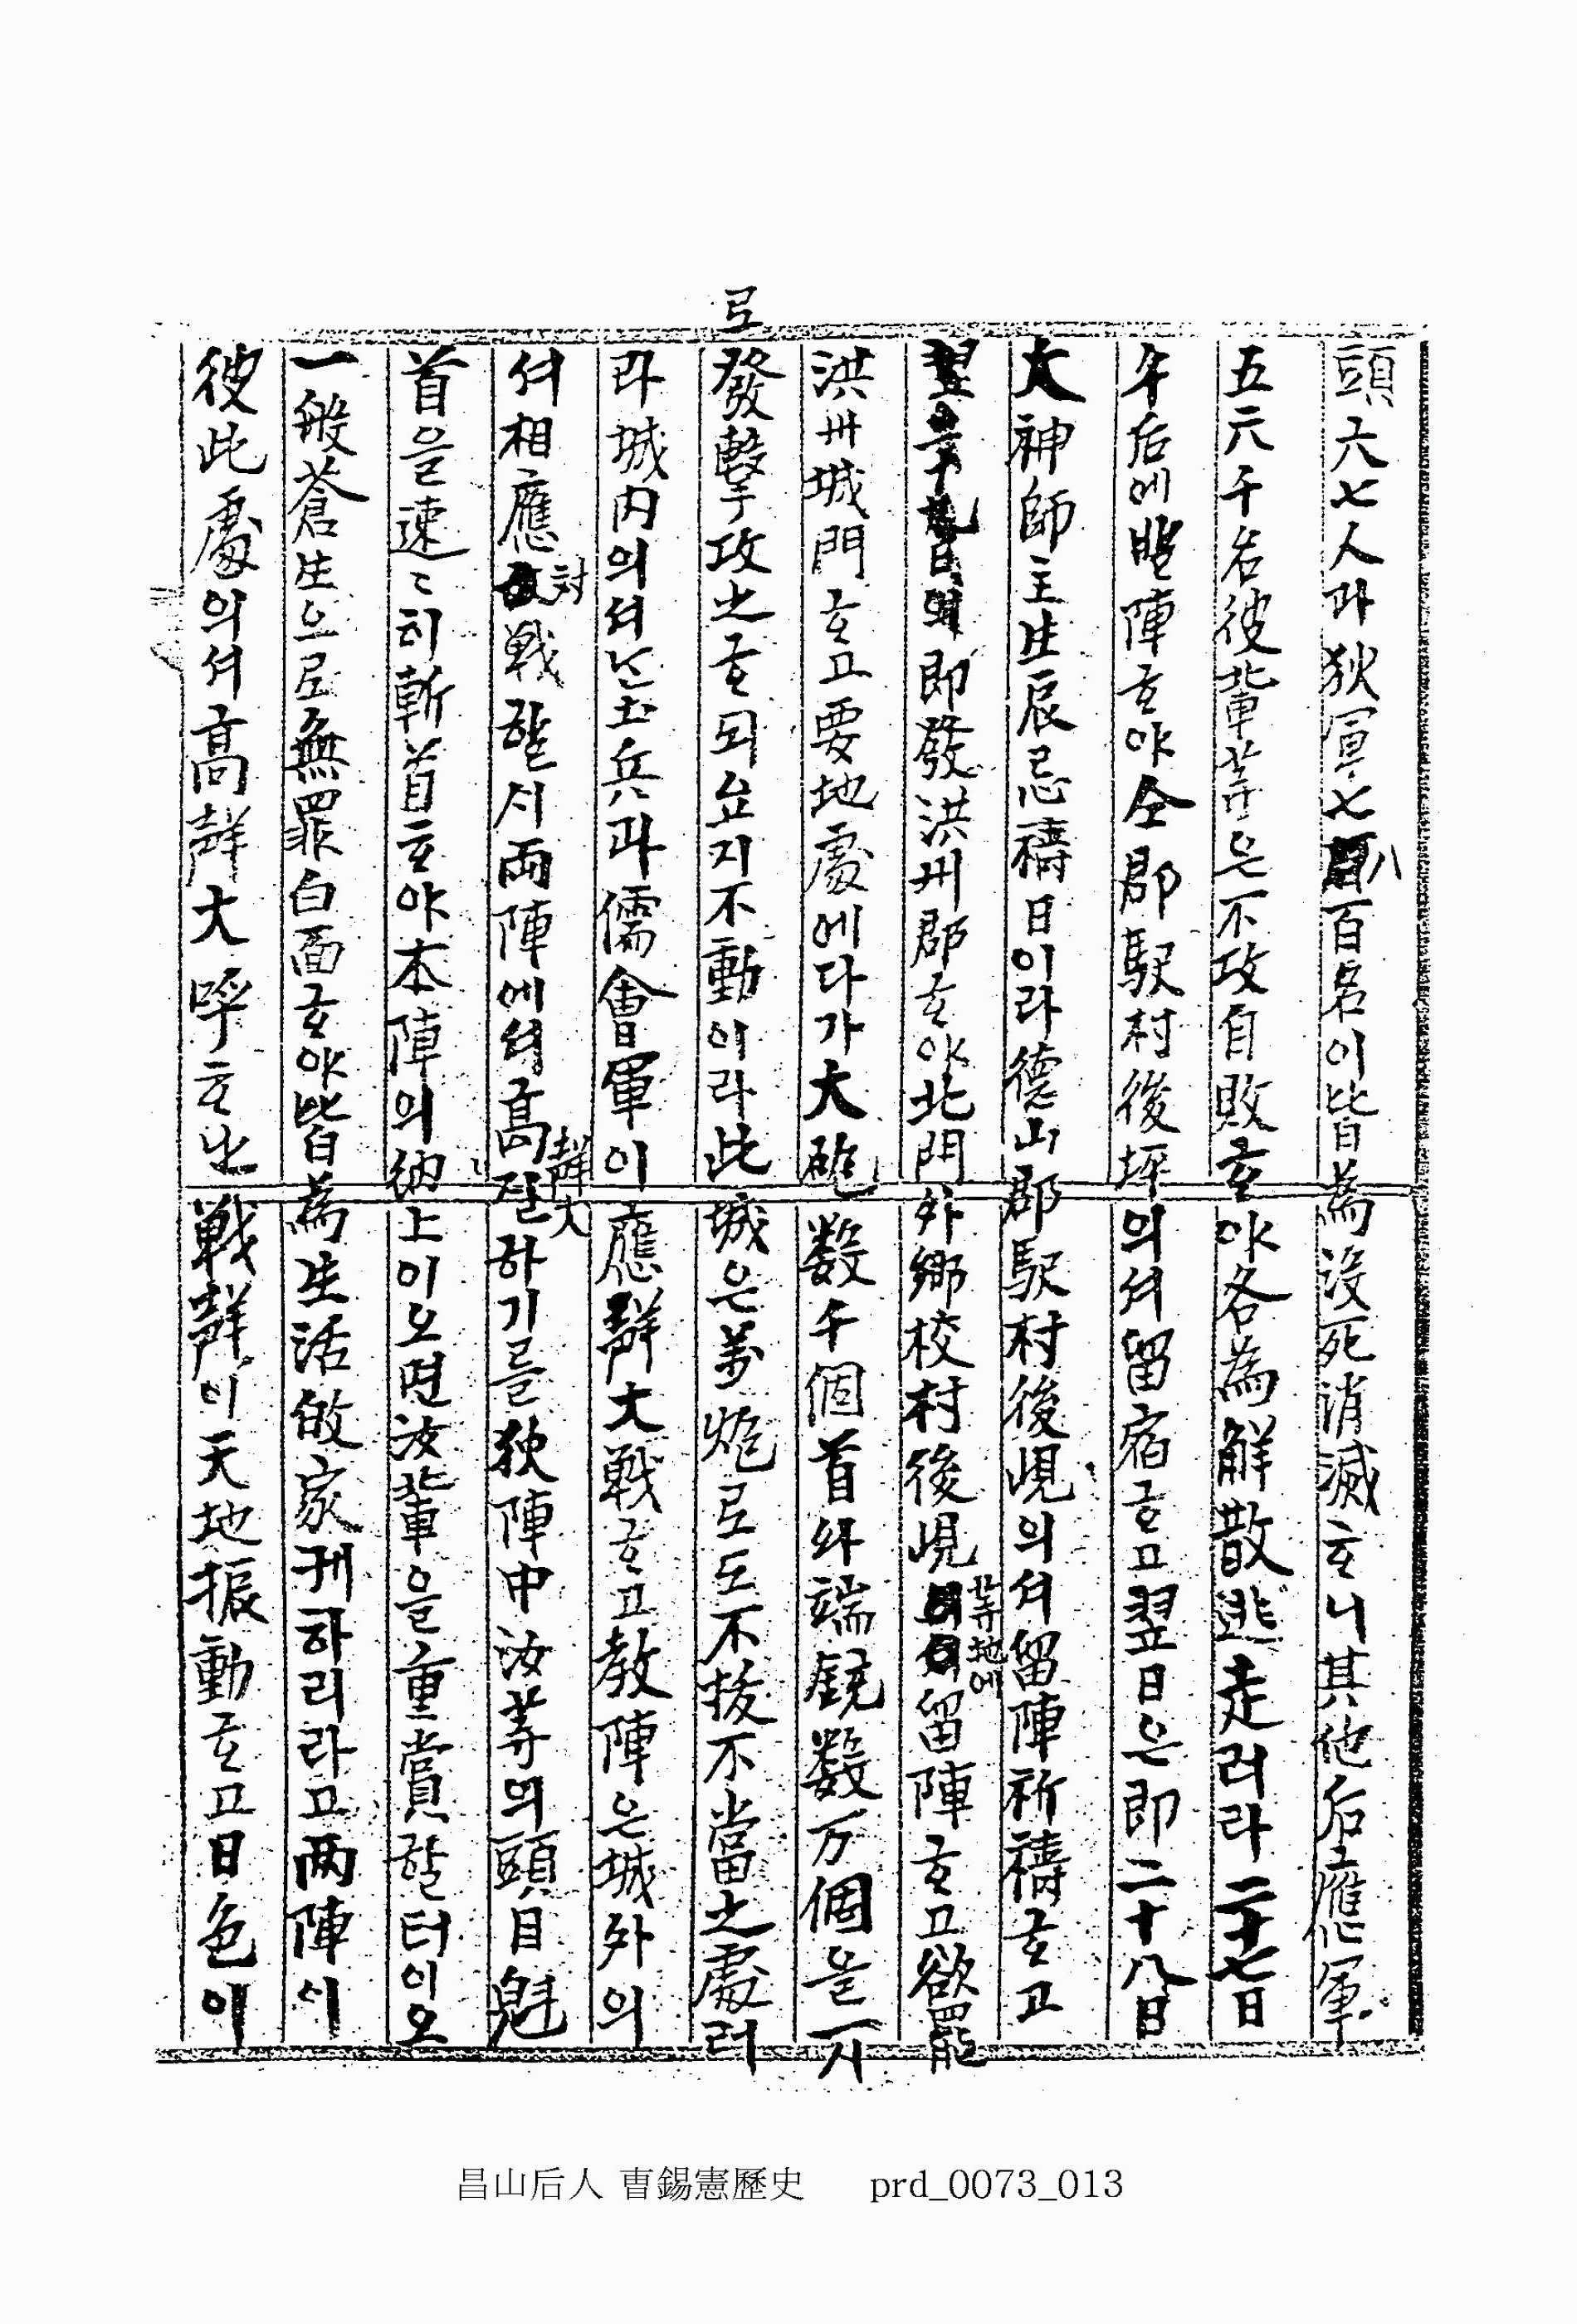 頭六七人과狄軍七八百名이皆為沒死消滅ᄒᆞ니其他后應軍
五六千名彼輩等은不攻自敗ᄒᆞ야各為解散逃走러라二十七日
午后에 陣ᄒᆞ야仝郡駅村後坪의셔留宿ᄒᆞ고翌日은即二十八日
大神師主生辰忌禱日이라德山郡駅村後峴의셔留陣祈禱ᄒᆞ고
即發洪州郡ᄒᆞ야北門外鄉校村後峴等地에留陣ᄒᆞ고欲罷
洪州城門ᄒᆞ고要地處에다가大砲数千個首와端銃数万個을一시
로發擊攻之ᄒᆞ되ᄭᅩ지不動이라此城은萬炮로도不拔不當之處러
라城内의셔ᄂᆞᆫ土兵과儒會軍이應聲大戰ᄒᆞ고教陣은城外의
셔相應對戰할시両陣에셔高聲大질하기를狄陣中汝等의頭目魁
首을速〻히斬首ᄒᆞ야本陣의納上이오면汝輩을重賞할터이오
一般蒼生으로無罪白面ᄒᆞ야皆為生活敀家케하리라고両陣이
彼此處의셔高聲大呼ᄒᆞ之戰聲이天地振動ᄒᆞ고日色이
昌山后人 曺錫憲歷史 prd_0073_013